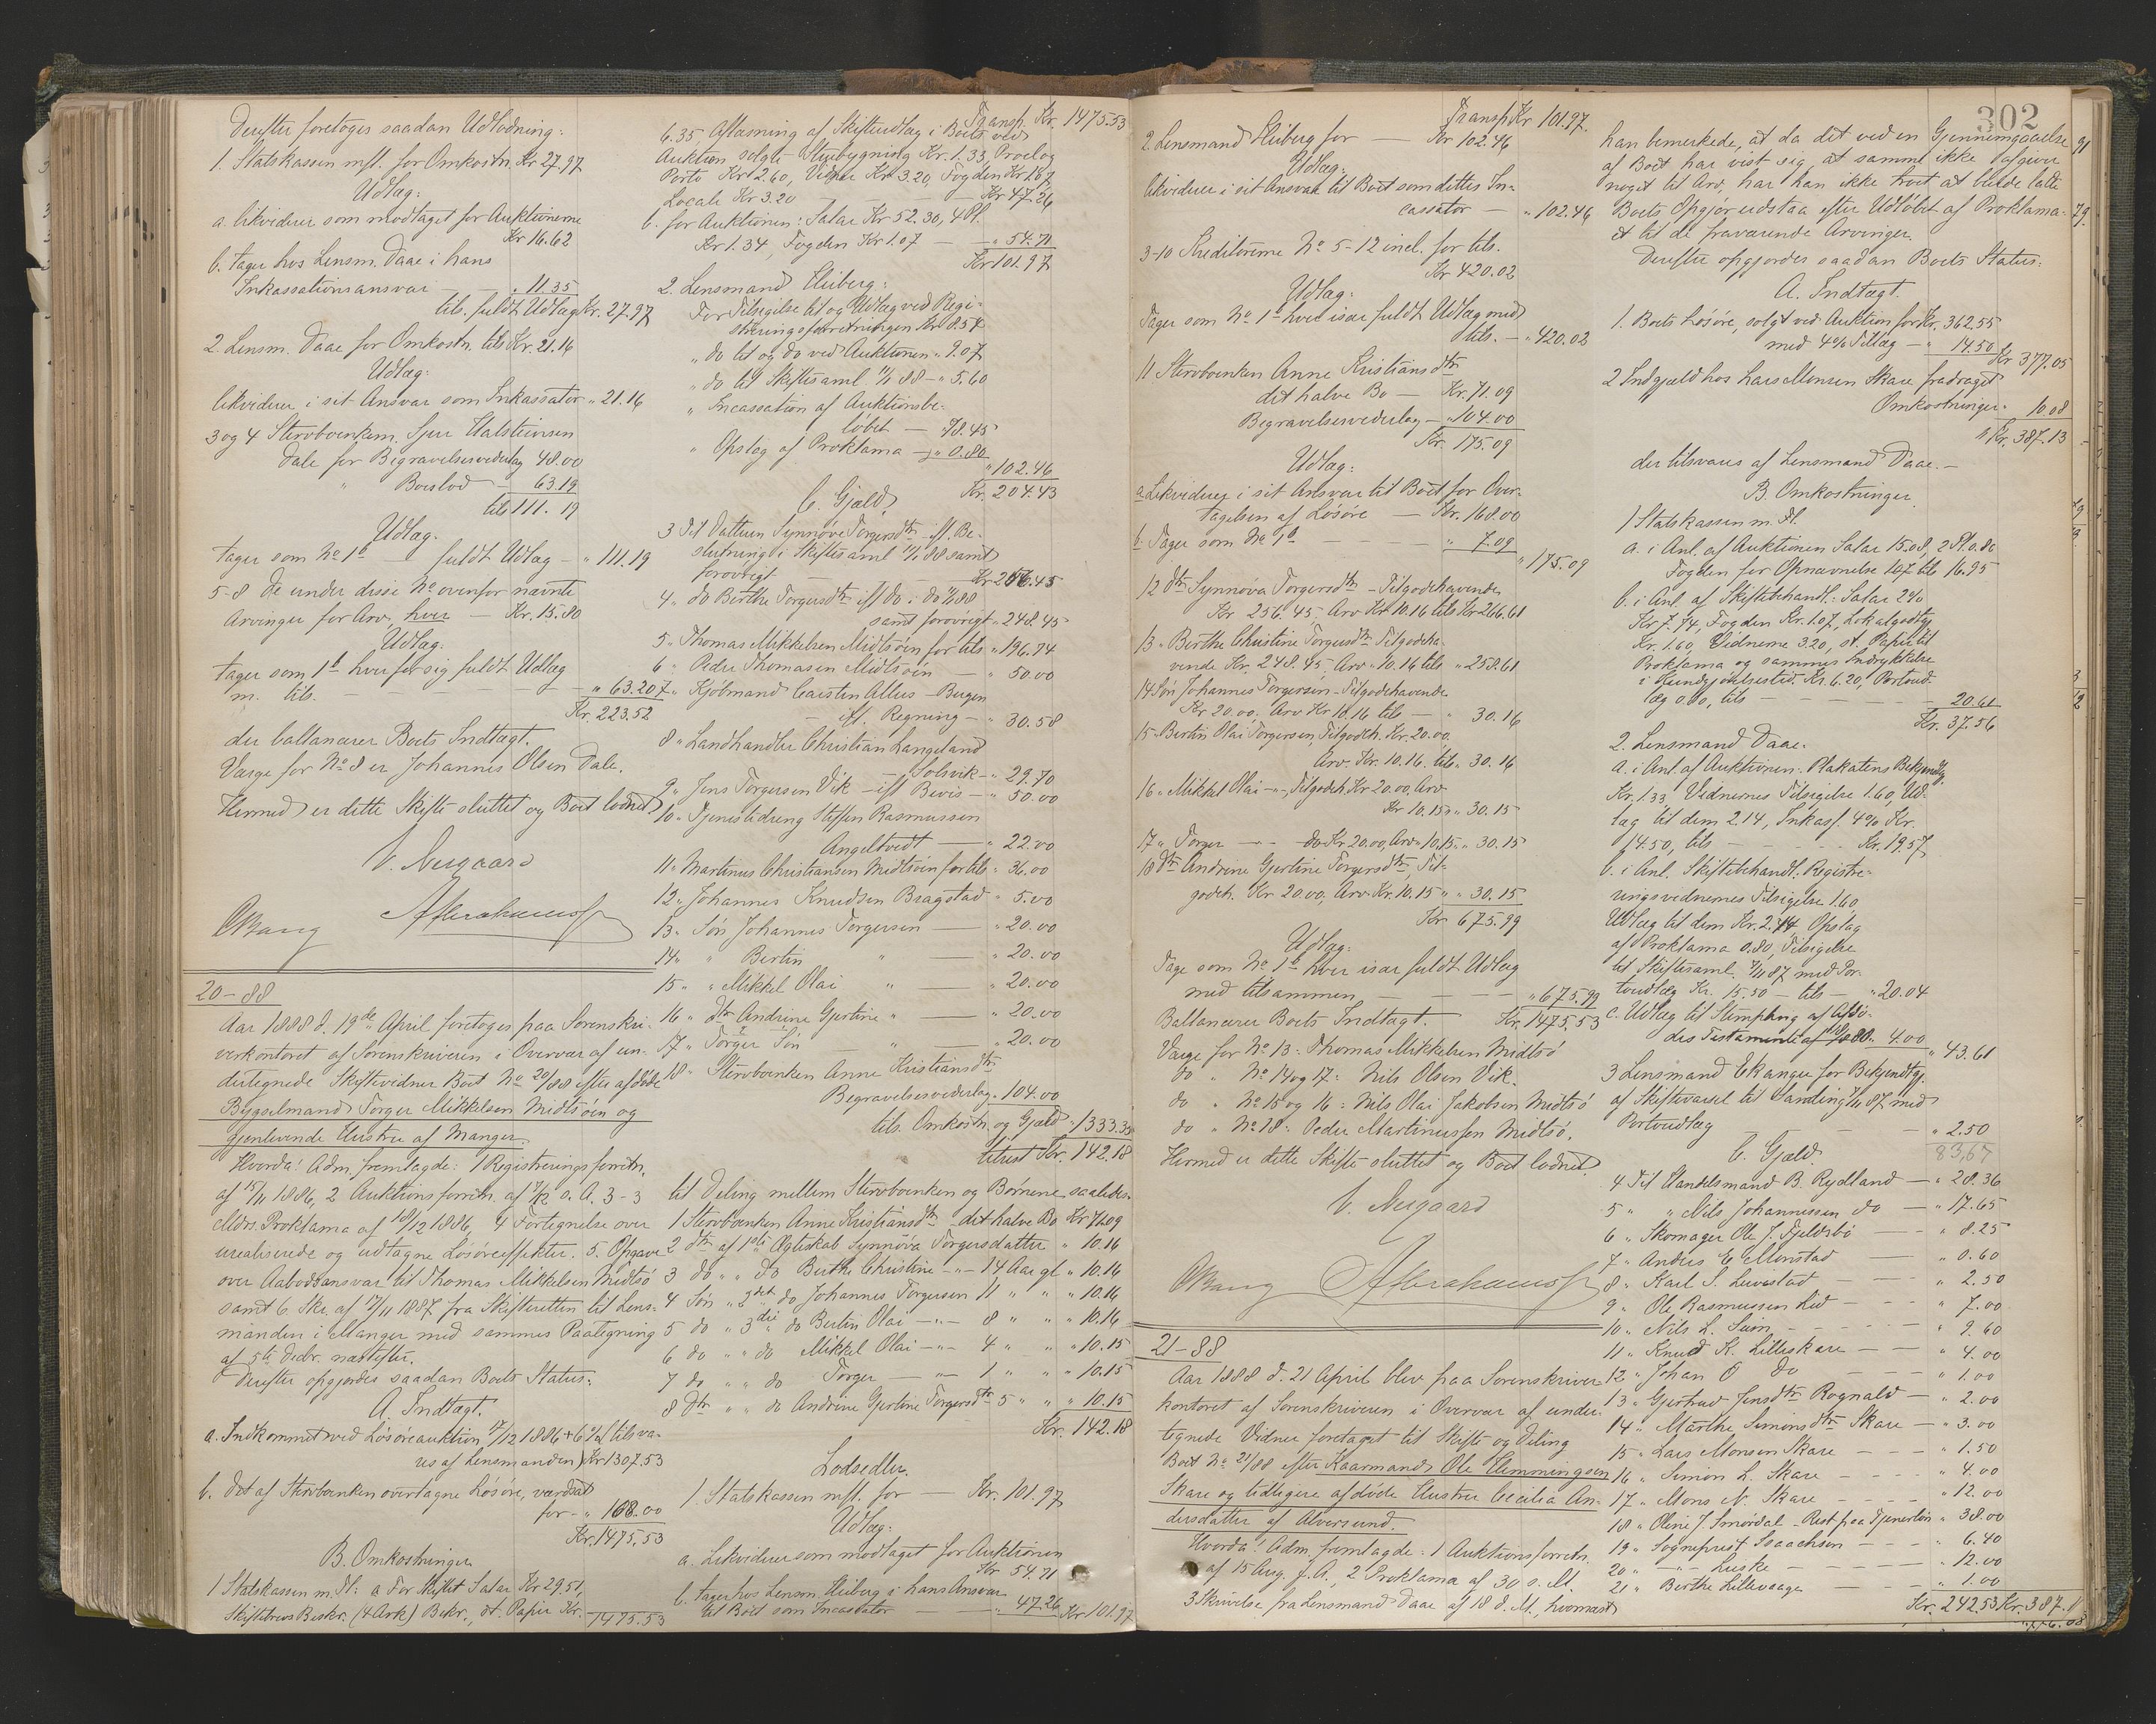 Derefter foretoges saadan Udlodning:
1. Statskassen mfl. for Omkostn. Kr 27.97
Udlæg:
a. likviderer som modtaget for Auktionerne
Kr 16.62
b. tager hos Lensm. Daae i hans
Inkassationsansvar — „ 11.35
tils. fuldt Udlæg Kr. 27.97
2. Lensm. Daae for Omkostn. tils Kr. 21.16
Udlæg:
likviderer i sit Ansvar som Inkassator „ 21.16
3 og 4 Stervboenkem. Sjur Halsteinsen
Dale for Begravelsesvederlag 48.00
„ Boeslod — 63.19
tils 111.19
Udlæg.
tager som No 1b fuldt Udlæg — „ 111.19
5-8 De under disse No ovenfor nævnte
Arvinger for Arv, hver — Kr. 15.80
Udlæg:
tager som 1b hver for sig fuldt Udlæg
m. tils. — „ 63.20
Kr. 223.52
der ballancerer Boets Indtægt.
Værge for No 8 er Johannes Olsen Dale.
Hermed er dette Skifte sluttet og Boet lodnet.
V. Neegaard
OBang Abrahamsen
20-88
Aar 1888 d. 19de April foretoges paa Sorenskri-
verkontoret af Sorenskriveren i Overvær af un-
dertegnede Skiftevidner Boet No 20/88 efter afdøde
Bygselmand Torger Mikkelsen Midtsöen og
gjenlevende Hustru af Manger.
Hvorda! Adm. fremlagde: 1 Registreringsforretn.
af 15/11 1886, 2 Auktionsforretn. af 17/12 s. A. 3-3
Mdrs. Proklama af 18/12 1886, 4 Fortegnelse over
urealiserede og udtagne Løsøreeffekter. 5. Opgave
over Aabodsansvar til Thomas Mikkelsen Midtsö
samt 6 Skr. af 17/11 1887 fra Skifteretten til Lens-
manden i Manger med sammes Paategning
af 5te Decbr. næstefter.
Derefter opgjordes saadan Boets Status:
A. Indtægt.
a. Indkommet ved Løsøreauktion 17/12 1886 + 6% (tilsva-
res af Lensmanden) Kr 1307.53
b. Det af Stervboenken overtagne Løsøre, værdsat
for — „ 168.00
Kr. 1475.53
B. Omkostninger
1 Statskassen m. fl: a For Skiftet Salar Kr 29.51,
Skiftebrevs Beskr. (4 Ark) Bekr., st. Papir Kr.
1475.53
Transp. Kr. 1475.53
6.35, Aflæsning af Skifteudlæg i Boets ved
Auktion solgte Stuebygning Kr. 1.33, Procl og
Porto Kr 2.60, Vidner Kr 3.20, Fogden Kr 1.07
Locale Kr 3.20 — Kr 47.26
b. for Auktionen: Salar Kr 52.30, 4 Pl.
Kr 1.34, Fogden Kr 1.07 — „ 54.71
Kr 101.97
2. Lensmand Heiberg:
For Tilsigelse til og Udlæg ved Regi-
streringsforretningen Kr 8.54
„ do til og do ved Auktionen „ 9.07
„ do til Skiftesaml 11/1 88 — „ 5.60
„ Incassation af Auktionsbe-
løbet — 78.45
„ Opslag af Proklama — „ 0.80
„ 102.46
Kr. 204.43
C. Gjæld
3 Til Datteren Synnøve Torgersdtr ifl. Be-
slutning i Skiftesaml 11/1 88 samt
forøvrigt — Kr 256.45
4 „ do Birthe Torgersdtr ifl do i do 11/1 88
samt forøvrigt „ 248.45
5 „ Thomas Mikkelsen Midtsöen for tils „ 196.74
6 „ Peder Thomasen Midtsöen — „ 50.00
7 „ Kjöbmand Carsten Allus — Bergen
ifl. Regning — „ 30.58
8 „ Landhandler Christian Langeland
Solsvik — „ 29.70
9 „ Jens Torgersen Vik — ifl Bevis — „ 50.00
10 „ Tjenestedreng Steffen Rasmussen
Angeltvedt — „ 22.00
11 „ Martinus Christiansen Midtsöen for tils „ 36.00
12 „ Johannes Knudsen Bragstad „ 5.00
13 „ Søn Johannes Torgersen — „ 20.00
14 „ „ Bertin „ — „ 20.00
15 „ „ Mikkel Olai „ — „ 20.00
16 „ dtr Andrine Gjertine „ — „ 20.00
17 „ Törger Sön „ — „ 20.00
18 „ Stervboenken Anne Kristiansdtr
Begravelsesvederlag „ 104.00
tils. Omkostn. og Gjæld „ 1333.35
tilrest Kr. 142.18
til Deling mellem Stervboenken og Børnene saaledes:
1 Stervboenken Anne Kristiansdtr det halve Bo Kr 71.09
2 dtr af 1ste Ægteskab Synnöva Torgersdatter „ 10.16
3 do „ do Birthe Christine — „ — 14 Aar gl „ 10.16
4 Søn „ 2det do Johannes Torgersen 11 „ „ „ 10.16
5 do „ 3die do Bertin Olai — „ — 8 „ „ „ 10.16
6 do „ „ do Mikkel Olai — „ — 4 „ „ „ 10.15
7 do „ „ do Torger — „ — 1 „ „ „ 10.15
8 Dtr „ „ do Andrine Gjertine Torgersdtr 5 „ „ „ 10.15
Kr. 142.18
Lodsedler.
1. Statskassen mfl. for — Kr. 101.97
Udlæg:
a. Likviderer som modtaget for Auktionen
Kr 54.71
b. tager hos Lensm Heiberg i hans Ansvar
til Boet som Incassator — „ 47.26 Kr 101.97
Transp Kr 101.97.
2. Lensmand Heiberg for — Kr 102.46
Udlæg:
likviderer i sit Ansvar til Boet som dettes In-
cassator — „ 102.46
3-10 Kreditorerne No 5-12 incl. for tils.
Kr 420.02
Udlæg:
Tager som No 1b hver især fuldt Udlæg med
tils. — „ 420.02
11 Stervboenken Anne Kristiansdtr
det halve Bo — Kr. 71.09
Begravelsesvederlag — „ 104.00
Kr. 175.09
Udlæg:
a Likviderer i sit Ansvar til Boet for Over-
tagelsen af Løsøre — Kr. 168.00
b Tager som No 1b — „ 7.09
„ 175.09
12 Dtr Synnöva Torgersdtr — Tilgodehavende
Kr 256.45, Arv Kr 10.16 tils Kr 266.61
13 „ Birthe Christine Torgersdtr Tilgodeha-
vende Kr. 248.45, Arv „ 10.16 tils „ 258.61
14 Søn Johannes Torgersen — Tilgodehavende
Kr 20.00, Arv Kr 10.16 tils — „ 30.16
15 „ Bertin Olai Torgersen, Tilgodeh. Kr. 20.00,
Arv. Kr. 10.16. tils „ 30.16
16 „ Mikkel Olai — „ —, Tilgodeh Kr 20.00, Arv
Kr 10.15 „ „ 30.15
17 „ Torger — „ — do Kr. 20.00, Arv „ 10.15 „ „ 30.15
18 Dtr Andrine Gjertine Torgersdtr, Til-
godeh. Kr 20.00, Arv Kr. 10.15 „ „ 30.15
Kr 675.99
Udlæg:
Tage som No 1b hver især fuldt Udlæg
med tilsammen — „ 675.99
Ballancerer Boets Indtægt. Kr. 1475.53
Værge for No 13: Thomas Mikkelsen Midtsö
do „ No 14 og 17: Nils Olsen Vik.
do „ No 15 og 16: Nils Olai Jakobsen Midtsö
do „ No 18: Peder Martinussen Midtsö.
Hermed er dette Skifte sluttet og Boet lodnet.
V. Neegaard
OBang Abrahamsen
21-88
Aar 1888 d. 21 April blev paa Sorenskriver
kontoret af Sorenskriveren i Overvær af under-
tegnede Vidner foretaget til Skifte og Deling
Boet No 21/88 efter Kaarmand Ole Hemmingsen
Skare og tidligere afdøde Hustru Cecilia An-
dersdatter af Alversund.
Hvorda! Adm. fremlagde: 1 Auktionsforretn.
af 15 Aug. f. A., 2 Proklama af 30 s. M.
3 Skrivelse fra Lensmand Daae af 18 d. M., hvornæst
302
han bemerkede, at da det ved en Gjennemgaaelse
af Boet har vist sig, at samme ikke afgiver
noget til Arv, har han ikke troet at burde lade
Boets Opgjør udstaa efter Udløbet af Proklama-
et til de fraværende Arvinger.
Derefter opgjordes saadan Boets Status:
A. Indtægt.
1. Boets Løsøre, solgt ved Auktion for Kr. 362.55
med 4% Tillæg — „ 14.50 Kr 377.05
2 Indgjæld hos Lars Monsen Skare fradraget
Omkostninger „ 10.08
Kr. 387.13
der tilsvares af Lensmand Daae. —
B. Omkostninger
1 Statskassen m. fl.
a. i Anl. af Auktionen Salar 15.08, 2 Pl. 0.80
Fogden for Opnævnelse 1.07 tils 16.95
b. i Anl. af Skiftebehandl: Salar 2%
Kr 7.74, Fogden Kr. 1.07, Lokalgodtg
Kr. 1.60, Vidnerne 3.20, st. Papir til
Proklama og sammes Indrykkelse
i Kundgjørelsestid. Kr. 6.20, Portoud-
læg 0.80, tils — 20.61
Kr. 37.56
2. Lensmand Daae.
a. i Anl. af Auktionen: Plakatens Bekjendtg.
Kr. 1.33, Vidnernes Tilsigelse 1.60, Ud-
læg til dem 2.14, Inkass. 4% Kr.
14.50, tils — Kr. 19.57
b. i Anl. Skiftebehandl: Registre-
ringsvidnernes Tilsigelse 1.60
Udlæg til dem Kr. 2.14 Opslag
af Proklama 0.80, Tilsigelse
til Skiftesaml. 7/11 87 med Por-
toudlæg Kr. 15.50 — tils — „ 20.04
c. Udlæg til Stempling af Afdø-
des Testamente af 4.00
„ 43.61
3 Lensmand Ekanger for Bekjendtg.
af Skiftevarsel til Samling 7/11 87 med
Portoudlæg — „ 2.50
83,67
C. Gjæld.
4 Til Handelsmand B. Rydland — „ 28.36
5 „ „ Nils Johannessen do — „ 17.65
6 „ Skomager Ole J. Fjeldsbö — „ 8.25
7 „ Anders E Monstad — „ 0.60
8 „ Karl S. Leivestad — „ 2.50
9 „ Ole Rasmussen Lid — „ 7.00
10 „ Nils L. Seim — „ 9.60
11 „ Knud K. Lilleskare — „ 4.00
12 „ Johan O do — „ 1.00
13 „ Gjertrud Jensdtr Rognald — „ 2.00
14 „ Marthe Simonsdtr Skare — „ 3.00
15 „ Lars Monsen Skare — „ 1.50
16 „ Simon L. Skare — „ 4.00
17 „ Mons N. Skare — „ 12.00
18 „ Oline J. Smørdal — Rest paa Tjenerløn „ 38.00
19 „ Sogneprest Isaachsen — „ 6.40
20 „ — „ — Luske — „ 12.00
21 „ Birthe Lillevaage — „ 1.00
Kr. 242.53 Kr. 387.1